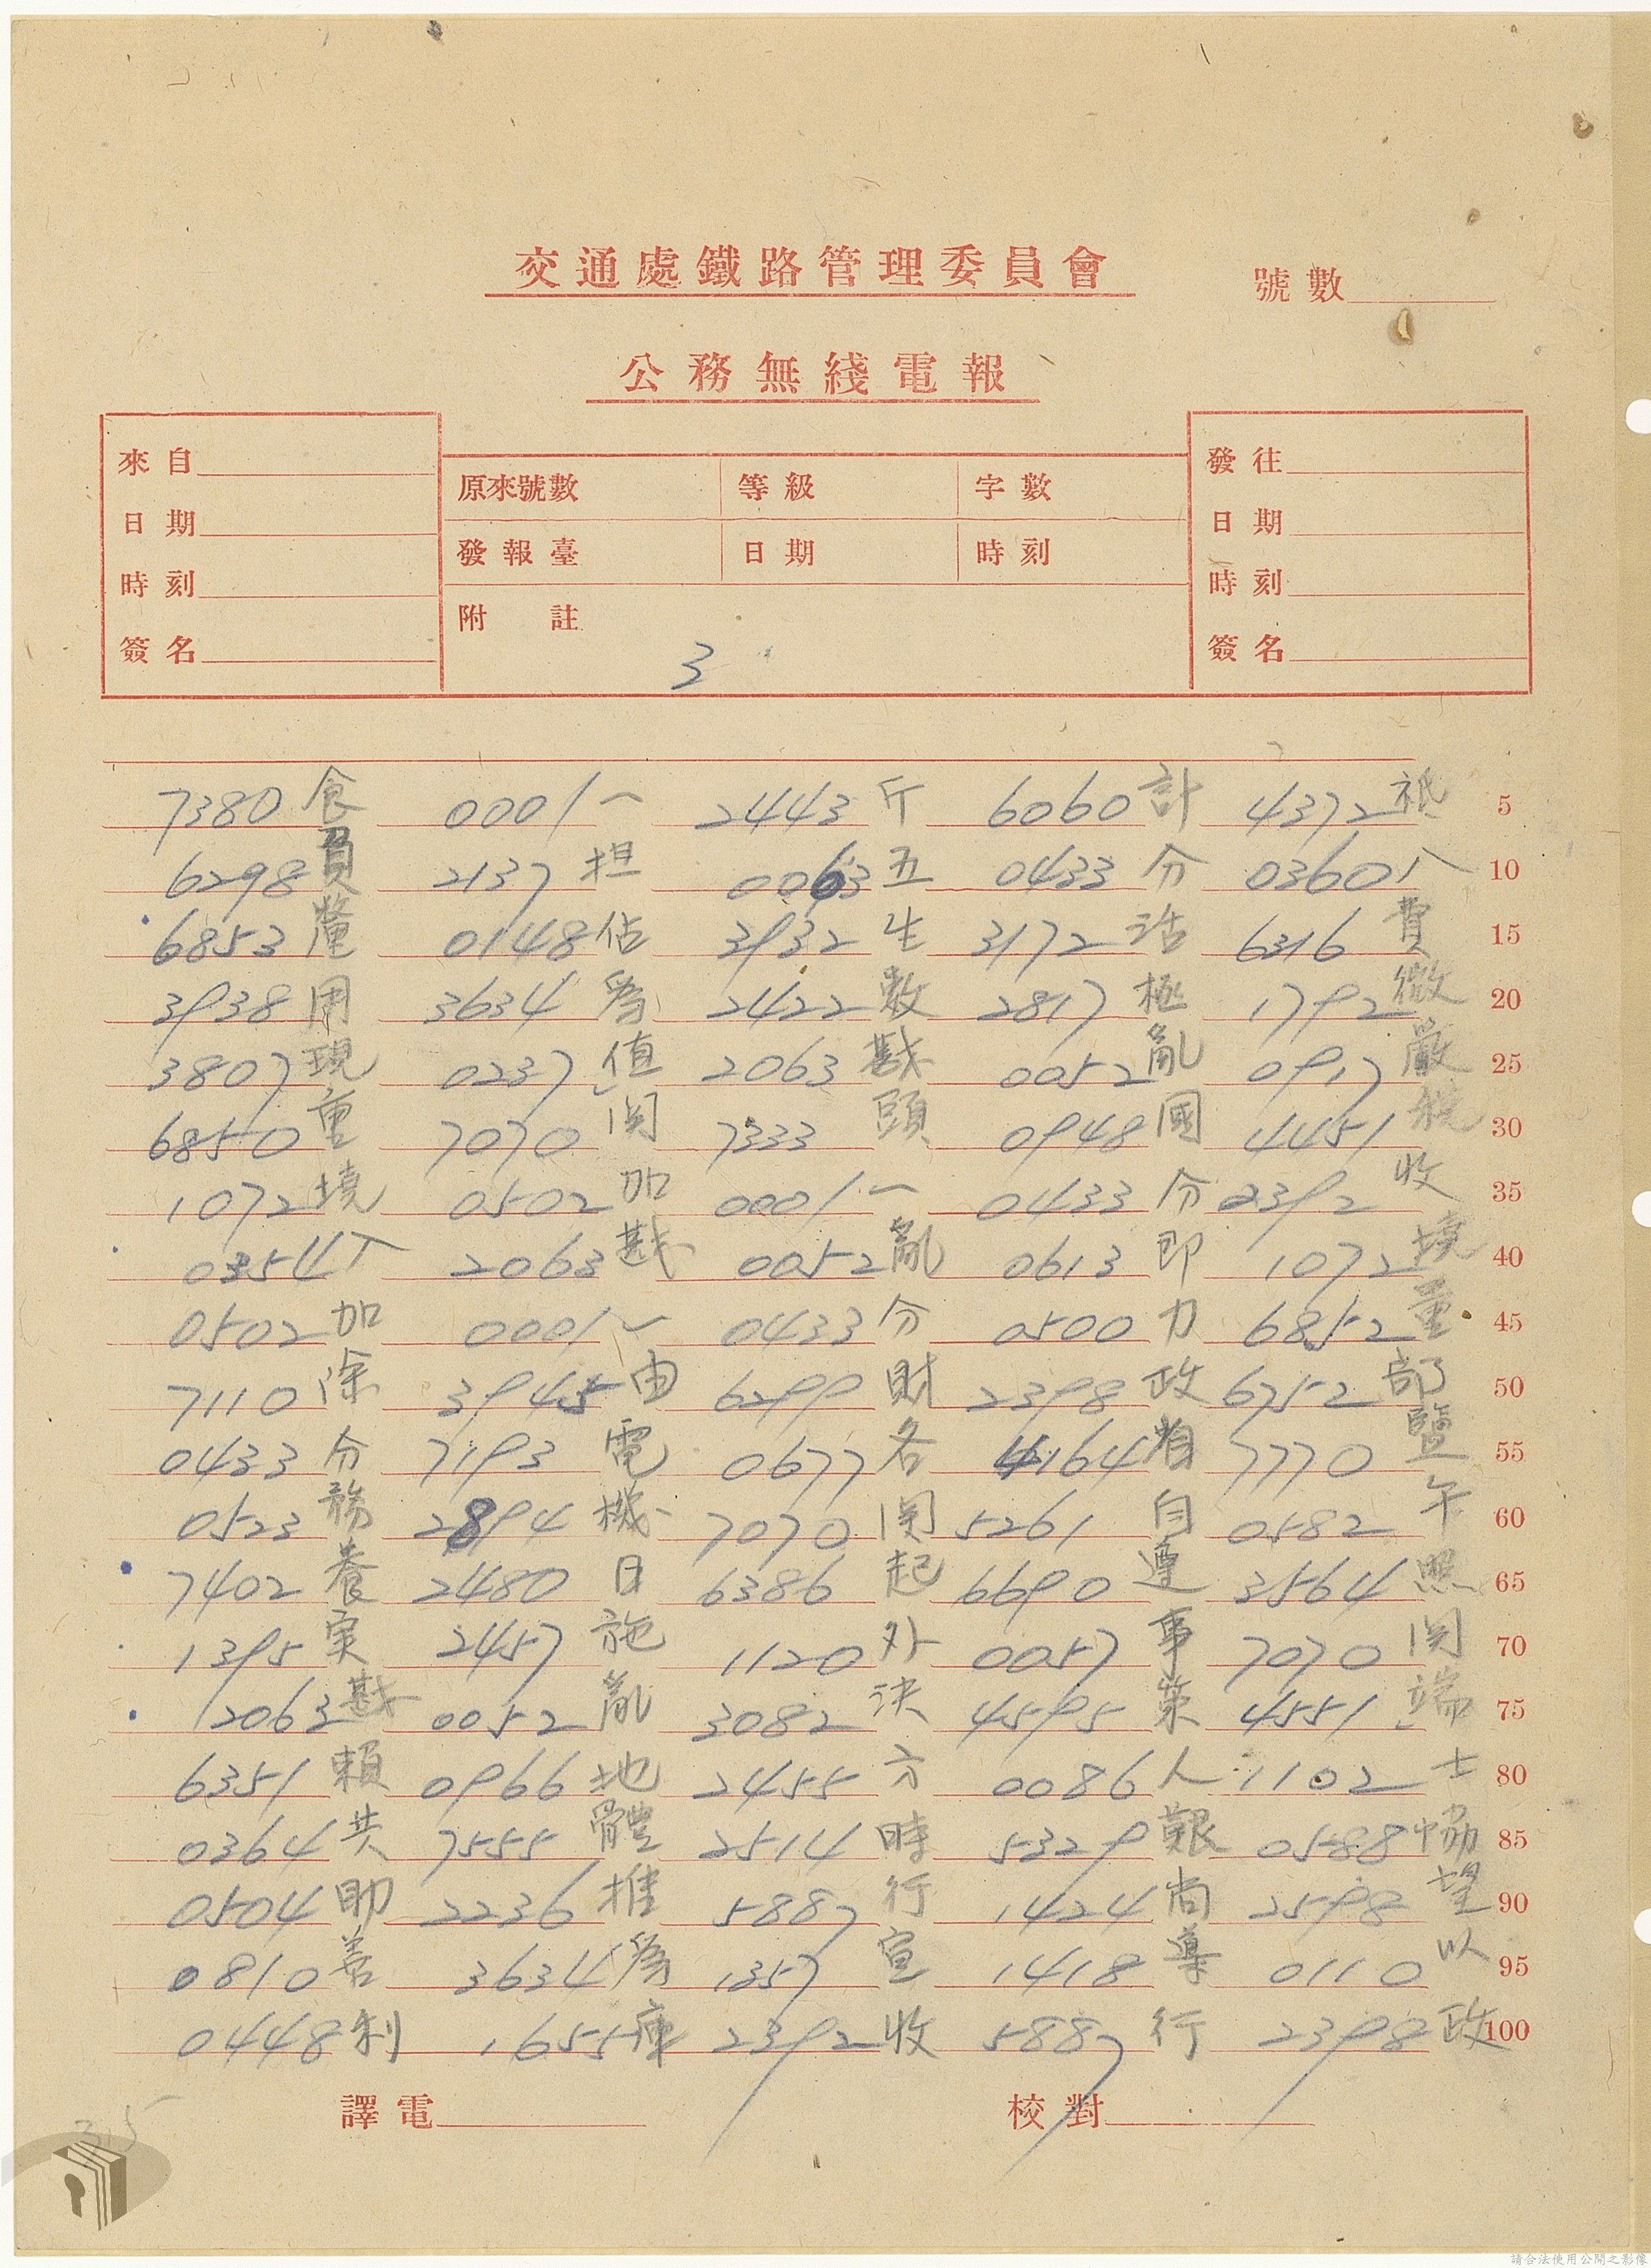 交通處鐵路管理委員會
號數
公務無綫電報
來自
日期
時刻
簽名
原來號數 等級 字數
發報臺 日期 時刻
附 註
3
發往
日期
時刻
簽名
7380 食 0001 一 2443 斤 6060 計 4372 祇 5
6298 負 2137 担 0063 五 0433 分 0360 八 10
6853 釐 0148 佔 3932 生 3172 活 6316 費 15
3938 用 3634 為 2422 数 2817 極 1792 微 20
3807 現 0237 值 2063 戡 0052 亂 0917 嚴 25
6850 重 7070 関 7333 頭 0948 國 4451 稅 30
1072 境 0502 加 0001 一 0433 分 2392 收 35
0354 入 2063 戡 0052 亂 0613 即 1072 境 40
0502 加 0001 一 0433 分 0500 力 6852 量 45
7110 除 3945 由 6299 財 2398 政 6752 部 50
0433 分 7193 電 0677 各 4164 省 7770 鹽 55
0523 務 2894 機 7070 関 5261 自 0582 午 60
7402 養 2480 日 6386 起 6690 遵 3564 照 65
1395 実 2457 施 1120 外 0057 事 7070 関 70
2063 戡 0052 亂 3082 决 4595 策 4551 端 75
6351 賴 0966 地 2455 方 0086 人 1102 士 80
0364 共 7555 體 2514 時 5329 艱 0588 協 85
0504 助 2236 推 5887 行 1424 尚 2598 望 90
0810 善 3634 為 1357 宣 1418 導 0110 以 95
0448 利 1655 庫 2392 收 5887 行 2398 政 100
譯電
校對
35
請合法使用公開之影像